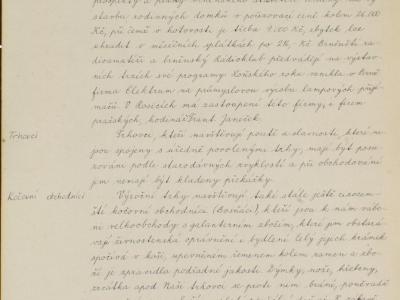 stavbu rodinných domků v pořizovací ceně kolem 26.000
Kč, při čemž v hotovosti je třeba 9.000 Kč, zbytek lze
uhradit v měsíčních splátkách po 216 Kč. Brněnští ra-
dioamatéři a brněnský Radioklub předvádějí na výstav-
ních trzích své programy. Loňského roku vznikla v Brně
firma Elektrum na průmyslovou výrobu lampových přijí-
mačů. V Rosicích má zastoupení této firmy, i firem
pražských, hodinář Frant. Janoušek.
Trhovci
Trhovci, kteří navštěvují poutě a slavnosti, které nej-
sou spojeny s úředně povolenými trhy, mají být poso-
zováni podle starodávných zvyklostí a při obchodování
jim nemají být kladeny překážky.
Kočovní obchodníci
Výroční trhy navštěvují také stále ještě cizozem-
ští kočovní obchodníci (Bosňáci), kteří jsou k nám vábe-
ni velkoobchody s galanterním zbožím, které jim obstará-
vají živnostenská oprávnění a bydlení. Celý jejich krámek
spočívá v koši, upevněném řemenem kolem ramen a zbo-
ží je zpravidla podřadné jakosti. Dýmky, nože, hřebeny,
zrcátka apod. Naši trhovci se proti nim brání, poněvadž